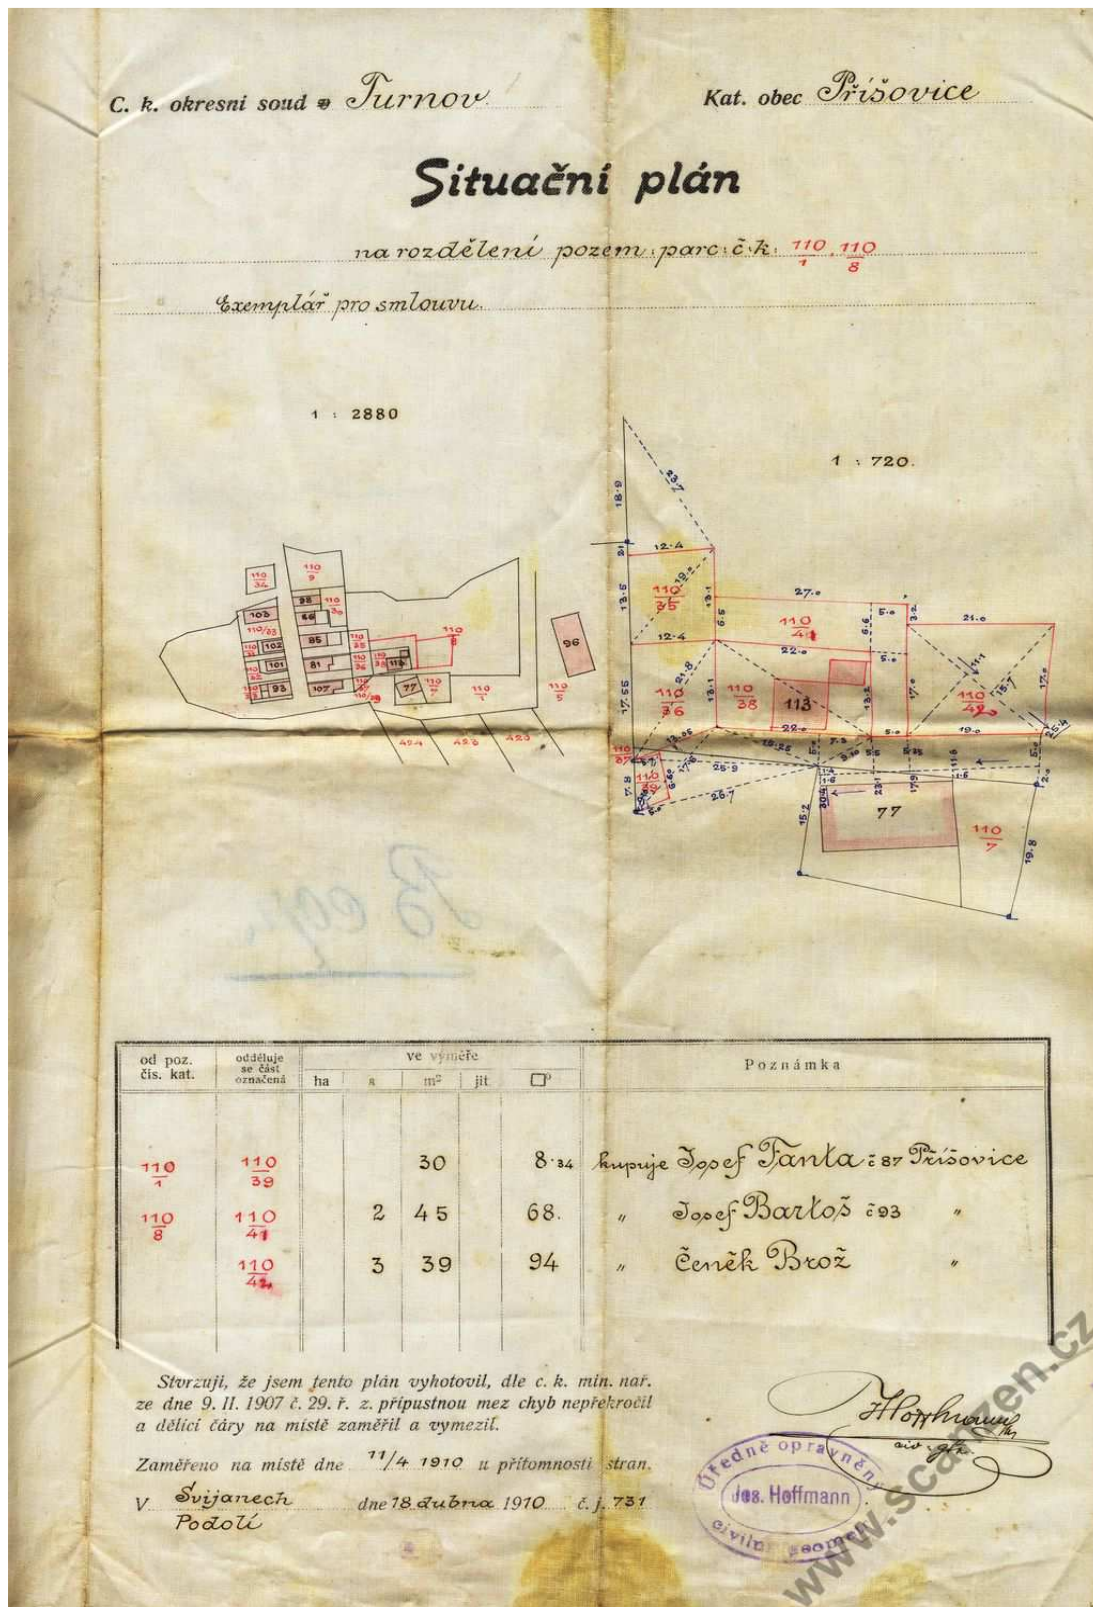 C. k. okresní soud Turnov
Kat. obec Příšovice
Situační plán
na rozdělení pozem. parc. č. k. 110/1, 110/8
Exemplář pro smlouvu.
1 : 2880
1 : 720.
110/34
110/9
98
103
110/33
102
101
93
85
81
107
113
77
110/8
110/1
110/5
96
424
423
18.9
23.7
2.1
12.4
13.5
19.0
110/35
13.1
12.4
6.5
27.0
110/41
22.0
6.6
5.0
5.0
3.2
21.0
17.55
21.8
110/36
13.1
110/38
113
22.0
13.2
17.0
110/42
17.0
19.0
5.0
110/37
7.8
25.9
26.7
15.2
77
23.1
17.9
110/7
19.8
od poz. čís. kat.
odděluje se část označená
ve výměře
ha a m² jit. □°
Poznámka
110/1 110/39 30 8.34 kupuje Josef Fanta č 87 Příšovice
110/8 110/41 2 45 68. „ Josef Bartoš č 93 „
110/42 3 39 94 „ Čeněk Brož „
Stvrzuji, že jsem tento plán vyhotovil, dle c. k. min. nař.
ze dne 9. II. 1907 č. 29. ř. z. přípustnou mez chyb nepřekročil
a dělící čáry na místě zaměřil a vymezil.
Zaměřeno na místě dne 11/4 1910 u přítomnosti stran.
V Svijanech dne 18 dubna 1910 č. j. 731
Podolí
JHoffmann
Úředně oprávněný
Jos. Hoffmann
civilní geometr
www.scanzen.cz